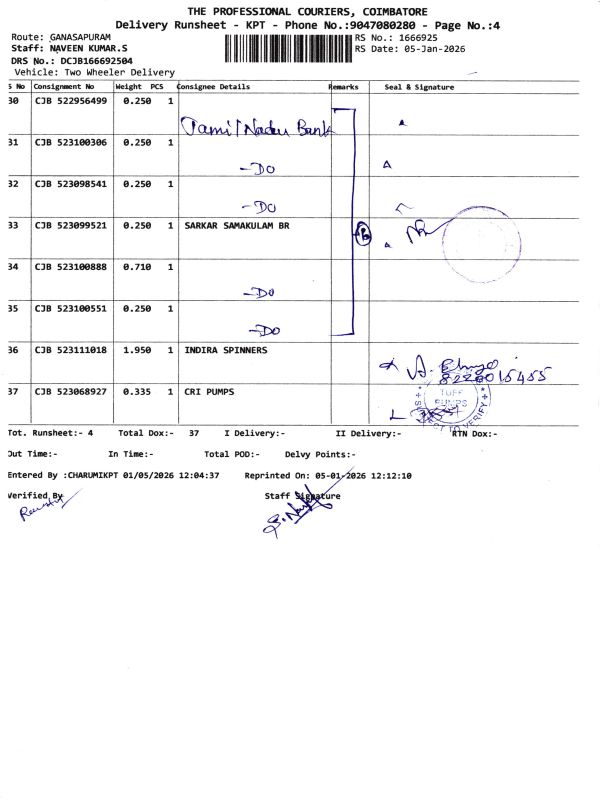 THE PROFESSIONAL COURIERS, COIMBATORE
Delivery Runsheet - KPT - Phone No.:9047080280 - Page No.:4
Route: GANASAPURAM
RS No.: 1666925
Staff: NAVEEN KUMAR.S
RS Date: 05-Jan-2026
DRS No.: DCJB166692504
Vehicle: Two Wheeler Delivery
S No Consignment No Weight PCS Consignee Details Remarks Seal & Signature
30 CJB 522956499 0.250 1
Tamil Nadu Bank
31 CJB 523100306 0.250 1
-DO
32 CJB 523098541 0.250 1
-DO
33 CJB 523099521 0.250 1 SARKAR SAMAKULAM BR
34 CJB 523100888 0.710 1
-DO
35 CJB 523100551 0.250 1
-DO
36 CJB 523111018 1.950 1 INDIRA SPINNERS
8220015455
37 CJB 523068927 0.335 1 CRI PUMPS
TUFF
PUMPS
Tot. Runsheet:- 4 Total Dox:- 37 I Delivery:- II Delivery:- RTN Dox:-
Out Time:- In Time:- Total POD:- Delvy Points:-
Entered By :CHARUMIKPT 01/05/2026 12:04:37 Reprinted On: 05-01-2026 12:12:10
Verified By Staff Signature